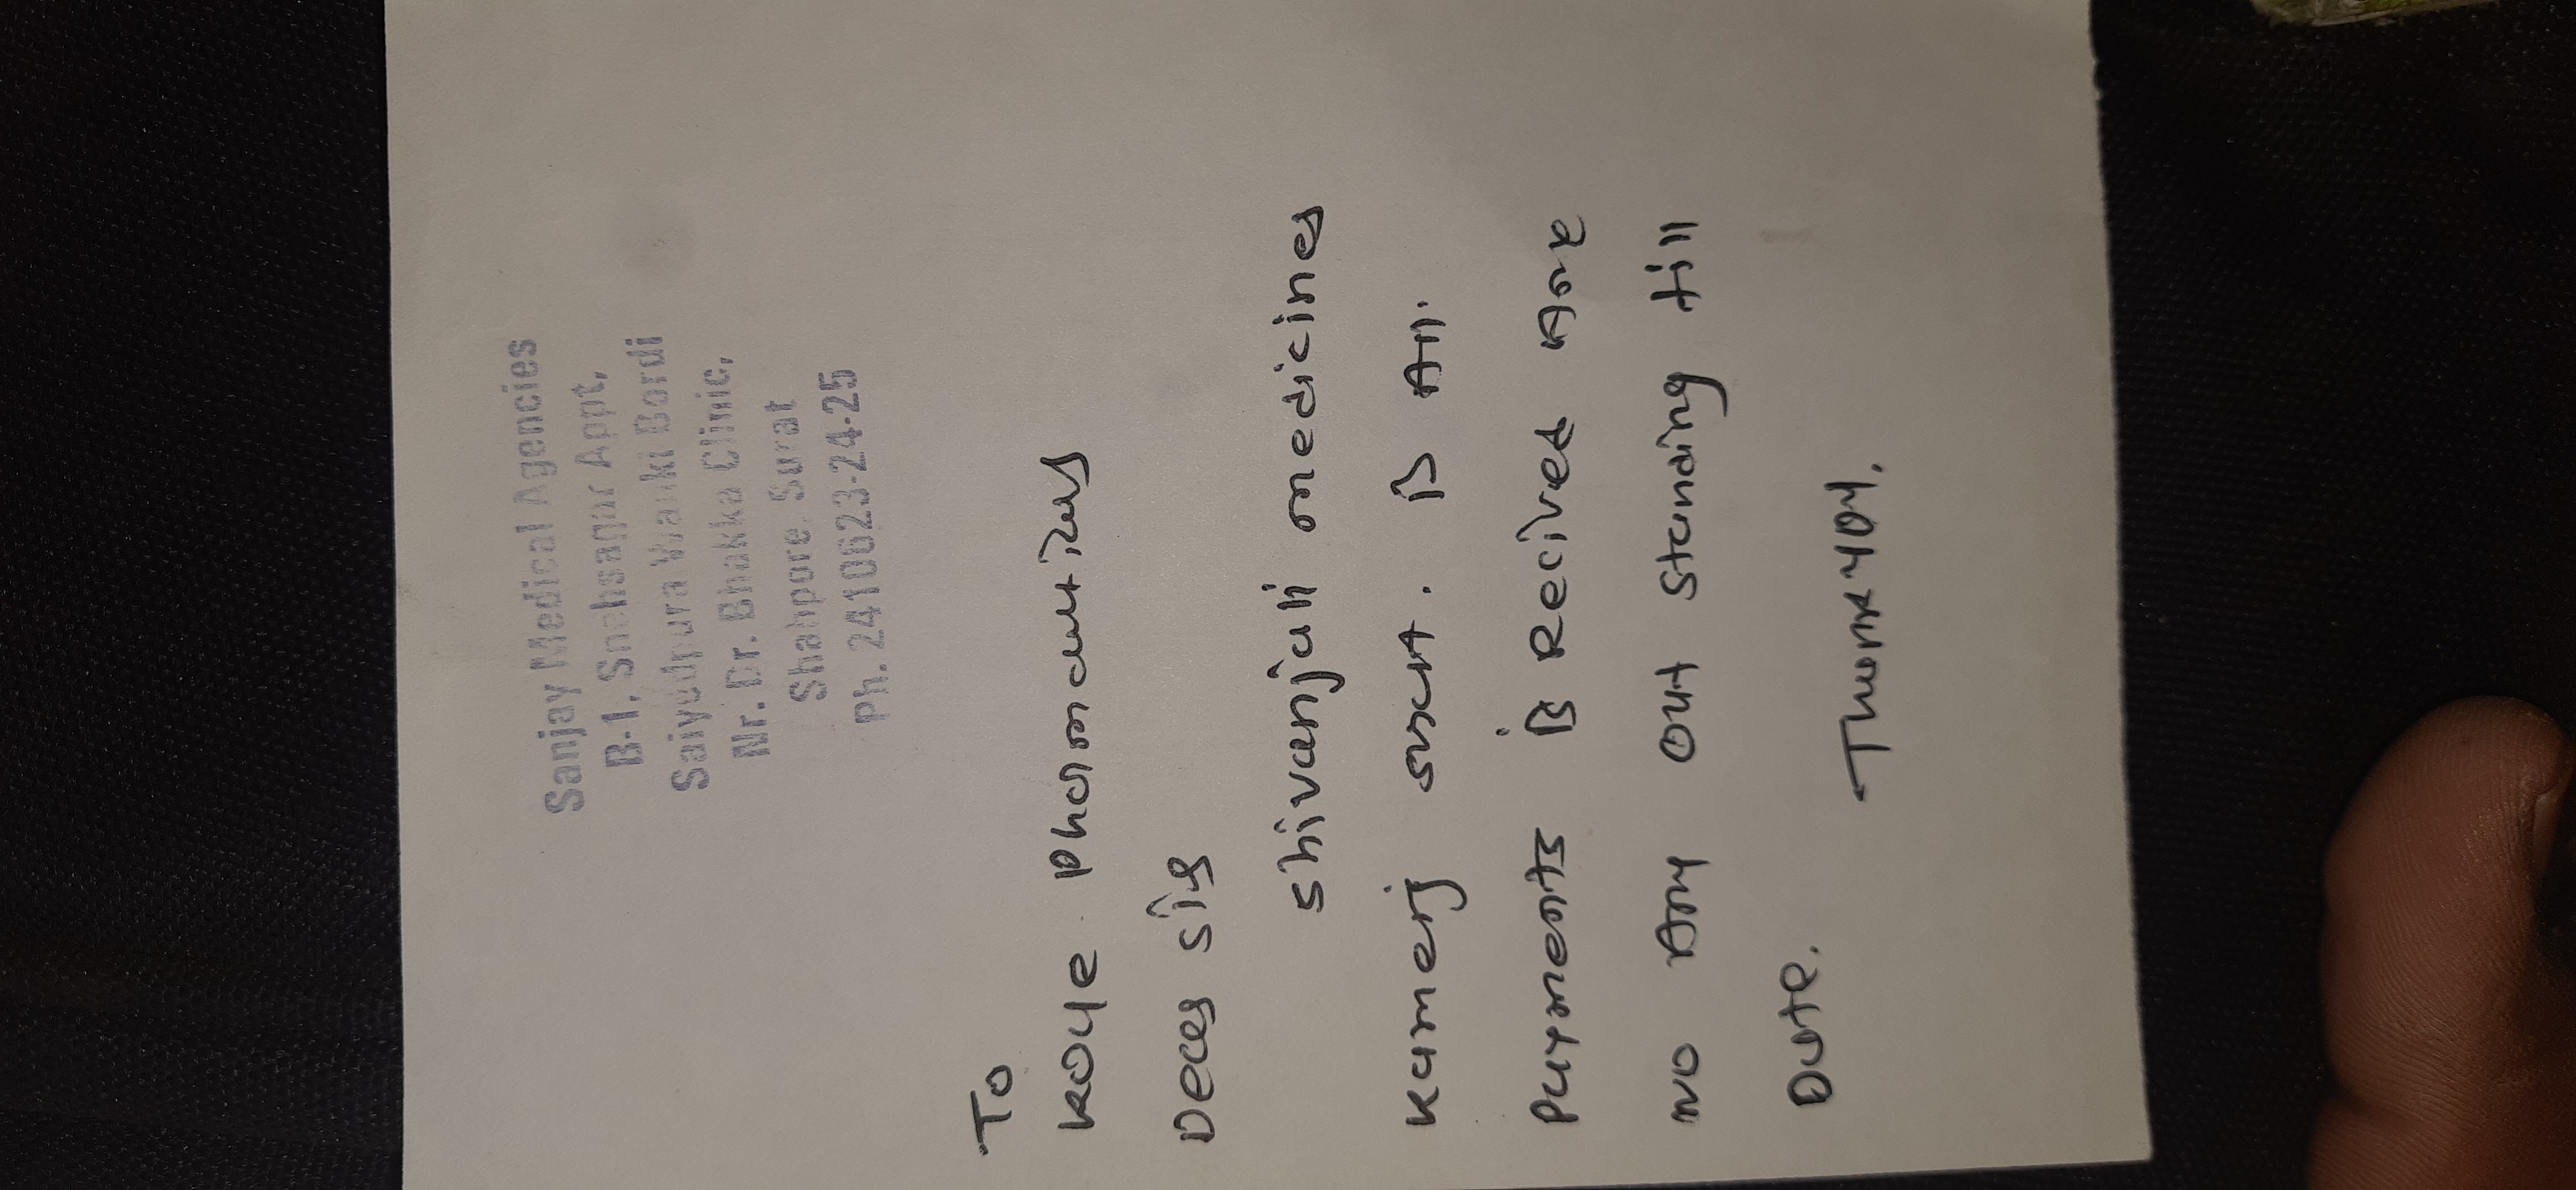 Sanjay Medical Agencies
B-1, Snehsagar Appt,
Saiyedpura Vanki Bordi
Nr. Dr. Bhakka Clinic,
Shahpore. Surat
Ph. 2410623-24-25
To
Koye Pharmacutical
Dear Sir
Shivanjali medicines
Kamrej surat. is All.
Payments is Recived And
no Any Out Standing till
Date.
Thank you.